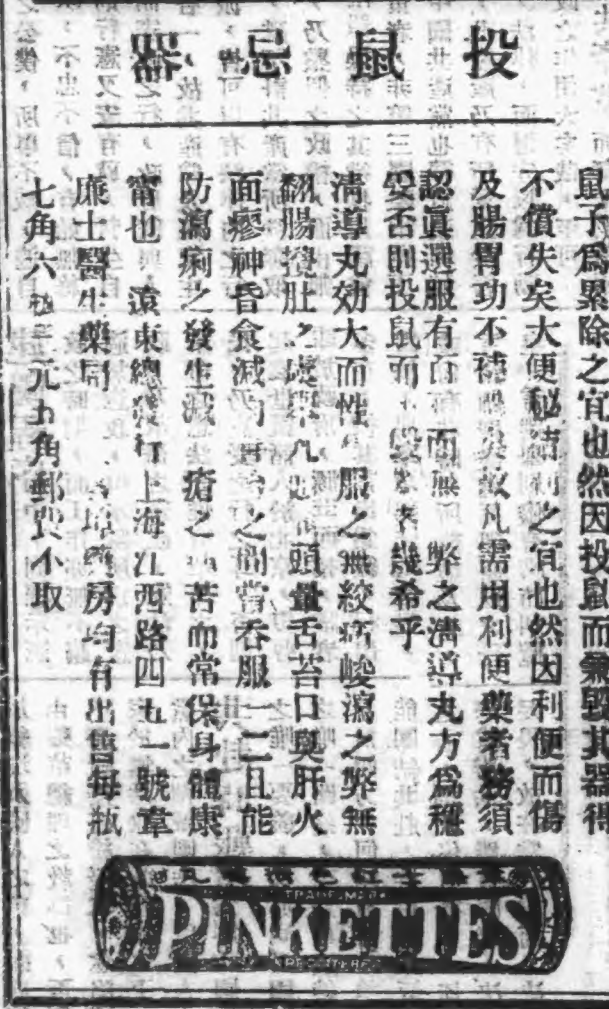 投鼠忌器
鼠子爲累除之宜也然因投鼠而兼毀其器得
不償失矣大便秘結利之宜也然因利便而傷
及腸胃功不補 矣故凡需用利便藥者務須
認眞選服有 而無 弊之淸導丸方爲穩
妥否則投鼠而不毀 者幾希乎
淸導丸効大而性 服之無絞痛峻瀉之弊無
翻腸攪肚之 凡 頭暈舌苔口臭肝火
面 神昏食減 之 嘗呑服一二且能
防瀉痢之發生減 痔瘡之 苦而常保身體康
甯也 遠東總發行上海江西路四五一號韋
廉士醫生藥局 藥房均有出售每瓶
七角六瓶三元九角郵費不取
TRADE MARK
PINKETTES
REGISTERED